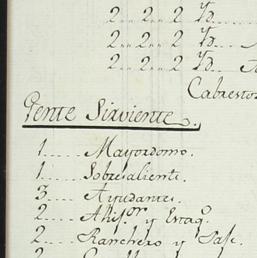 2.. 2.. 2 Yd.
2.. 2.. 2 Yd.
2.. 2.. 2 Yd.
Cabestos
Gente Sirviente.
1..... Mayordomo.
1..... Sobresaliente.
3..... Ayudantes.
2..... Ahijor y Estaqo.
2..... Ranchero y
2.....